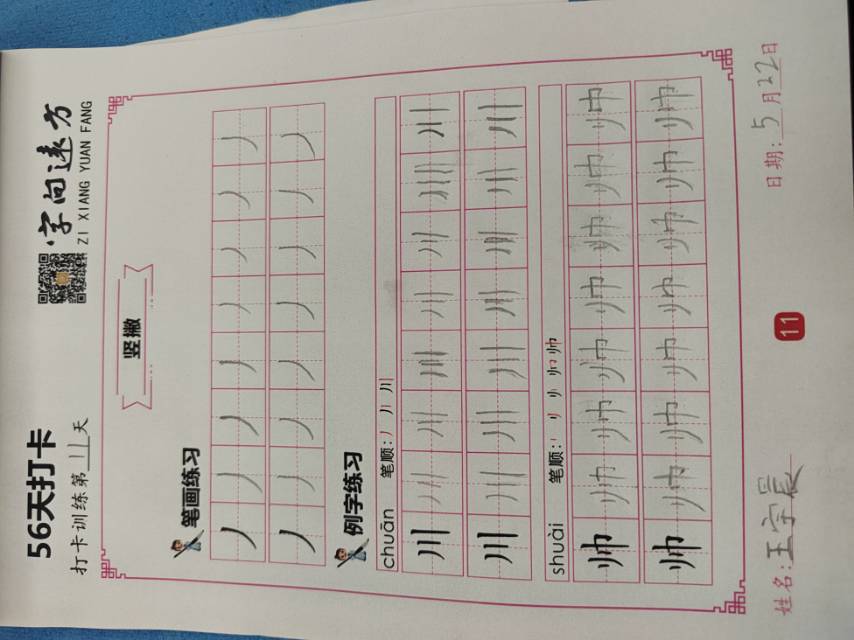 56天打卡
字向速方
ZI XIANG YUAN FANG
打卡训练第11天
竖撇
笔画练习
丿丿丿丿丿丿丿丿
丿丿丿丿丿丿丿丿
例字练习
chuān 笔顺:丿 川
川川川川川川川川
川川川川川川川川
shuài 笔顺: 帅
帅帅帅帅帅帅帅帅
帅帅帅帅帅帅帅帅
姓名:王宇晨
11
日期:5月22日